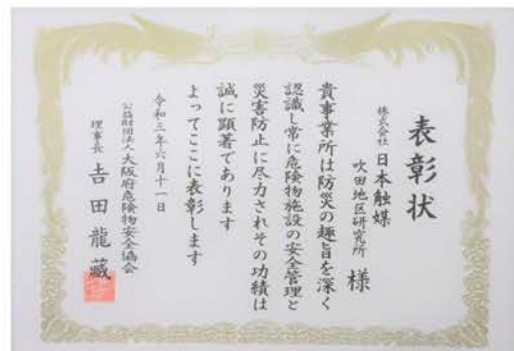 表彰状
株式会社 日本触媒
吹田地区研究所 様
貴事業所は防災の趣旨を深く
認識し常に危険物施設の安全管理と
災害防止に尽力されその功績は
誠に顕著であります
よってここに表彰します
令和三年六月十一日
公益財団法人 大阪府危険物安全協会
理事長 吉田龍藏